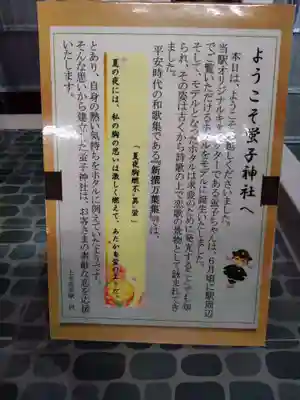 ようこそ螢子神社へ
本日は、ようこそお越しくださいました。
当駅オリジナルキャラクターである螢子ちゃんは、6月頃に駅周辺
でご覧いただけるホタルをモデルに誕生いたしました。
そして、モデルとなったホタルは求愛のために発光することでも知
られ、その姿は古くから詩歌の上で恋歌の景物として詠まれてき
ました。
平安時代の和歌集である『新撰万葉集』では、
「夏夜胸燃不異蛍」
夏の夜には、私の胸の思いは激しく燃えて、あたかも蛍のようだ。
とあり、自身の熱い気持ちをホタルに例えていたようです。
そんな思いから建立した「螢子神社」は、お客さまの素敵な恋を応援
いたします。